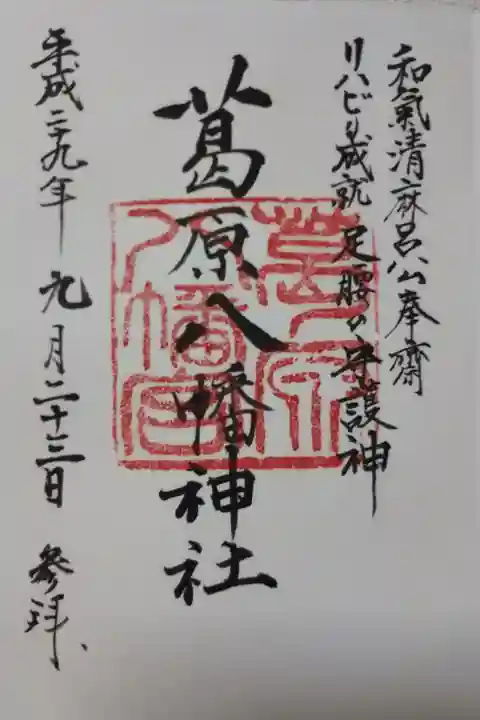 和氣清麻呂公奉齋
リハビリ成就 足腰の守護神
葛原八幡神社
葛原八幡宮
平成二十九年 九月二十三日 参拜、